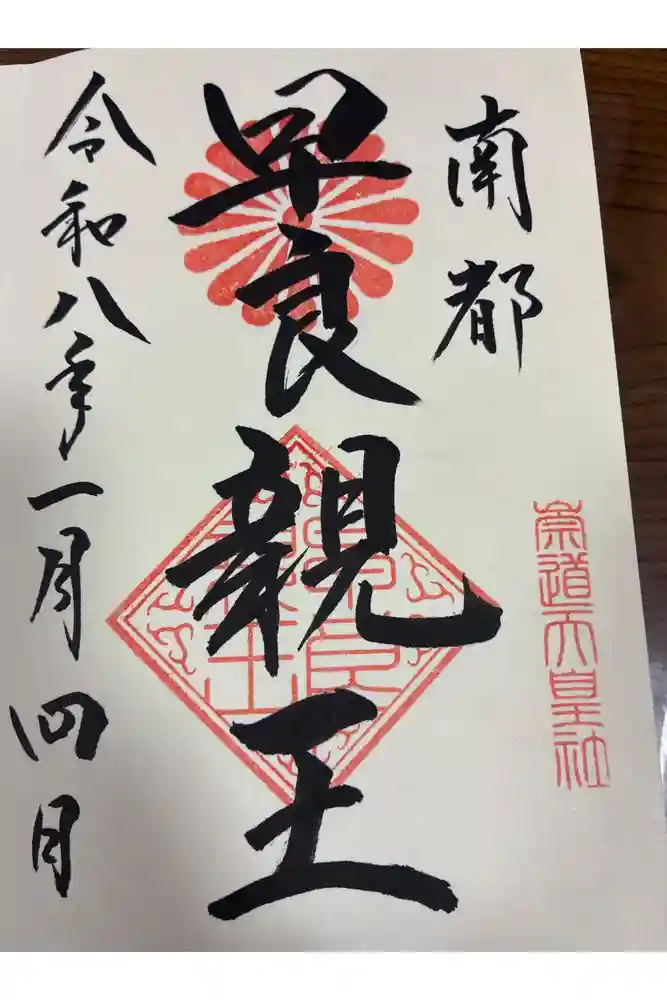 南都
崇道天皇社
早良親王
令和八年一月四日